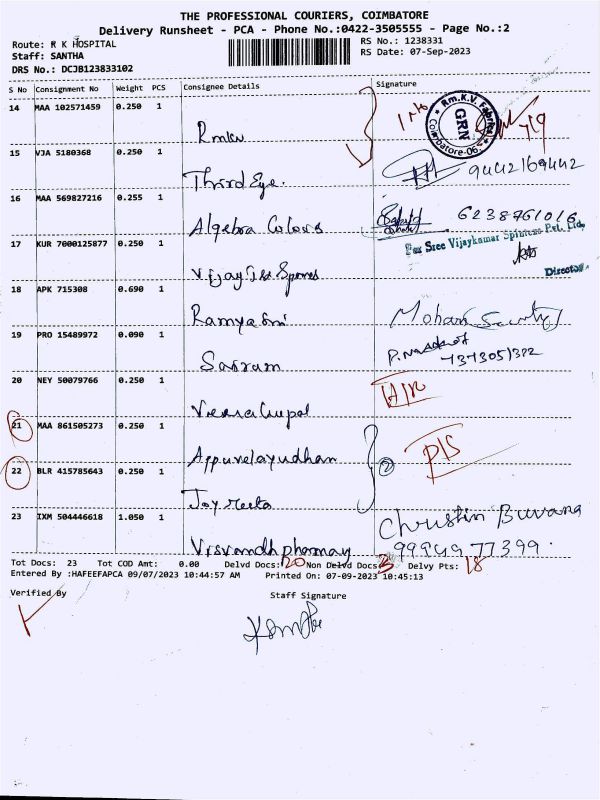 THE PROFESSIONAL COURIERS, COIMBATORE
Delivery Runsheet - PCA - Phone No.:0422-3505555 - Page No.:2
Route: R K HOSPITAL
RS No.: 1238331
Staff: SANTHA
RS Date: 07-Sep-2023
DRS No.: DCJB123833102
S No Consignment No Weight PCS Consignee Details Signature
14 MAA 102571459 0.250 1
Rmkv
Rm.K.V. Fabrics
GRN
Coimbatore-06.
15 VJA 5180368 0.250 1
Third Eye.
9442169442
16 MAA 569827216 0.255 1
Algebra Colours
6238761016
17 KUR 7000125877 0.250 1
For Sree Vijaykumar Spintess Pvt. Ltd.
Director
18 APK 715308 0.690 1
Ramya Sri
Mohan
19 PRO 15489972 0.090 1
Sairam
7373051322
20 NEY 50079766 0.250 1
Veena Gopal
21 MAA 861505273 0.250 1
Appuvelayudhan
22 BLR 415785643 0.250 1
2
Joy Meeta
23 IXM 504446618 1.050 1
Christin Buvana
Visvandh pharmay
9994977399.
Tot Docs: 23 Tot COD Amt: 0.00 Delvd Docs: 20 Non Delvd Docs: 3 Delvy Pts: 18
Entered By :HAFEEFAPCA 09/07/2023 10:44:57 AM Printed On: 07-09-2023 10:45:13
Verified By Staff Signature